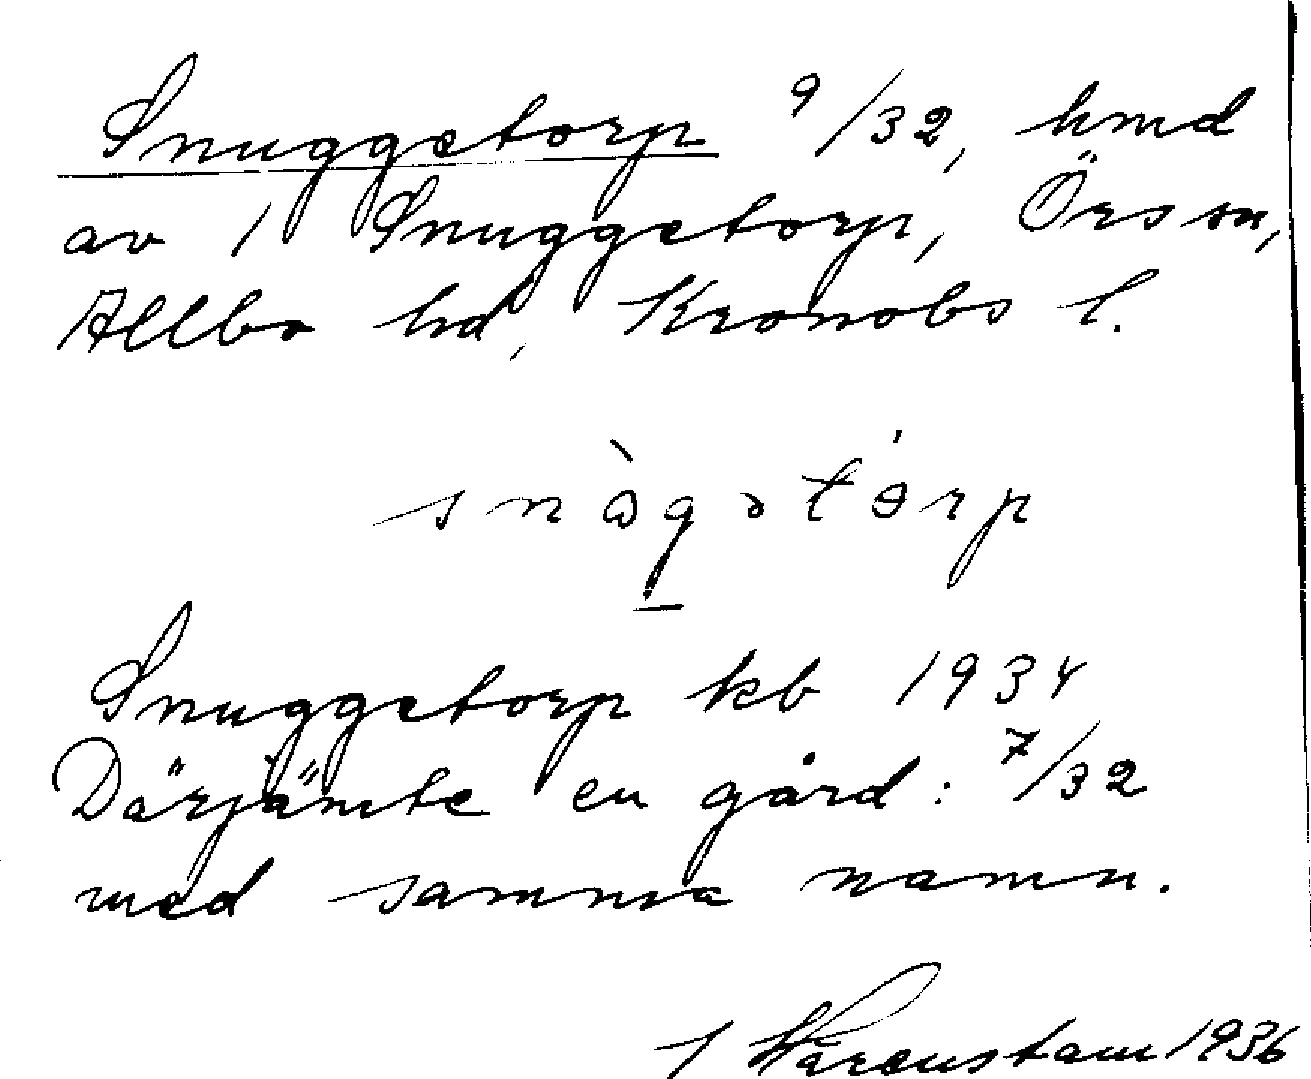 Snuggetorp 9/32, hmd
av 1 Snuggetorp, Örs sn,
Allbo hd, Kronobs l.
snògətórp
Snuggetorp kb 1934
Därjämte en gård: 7/32
med samma namn.
Wärenstam 1936